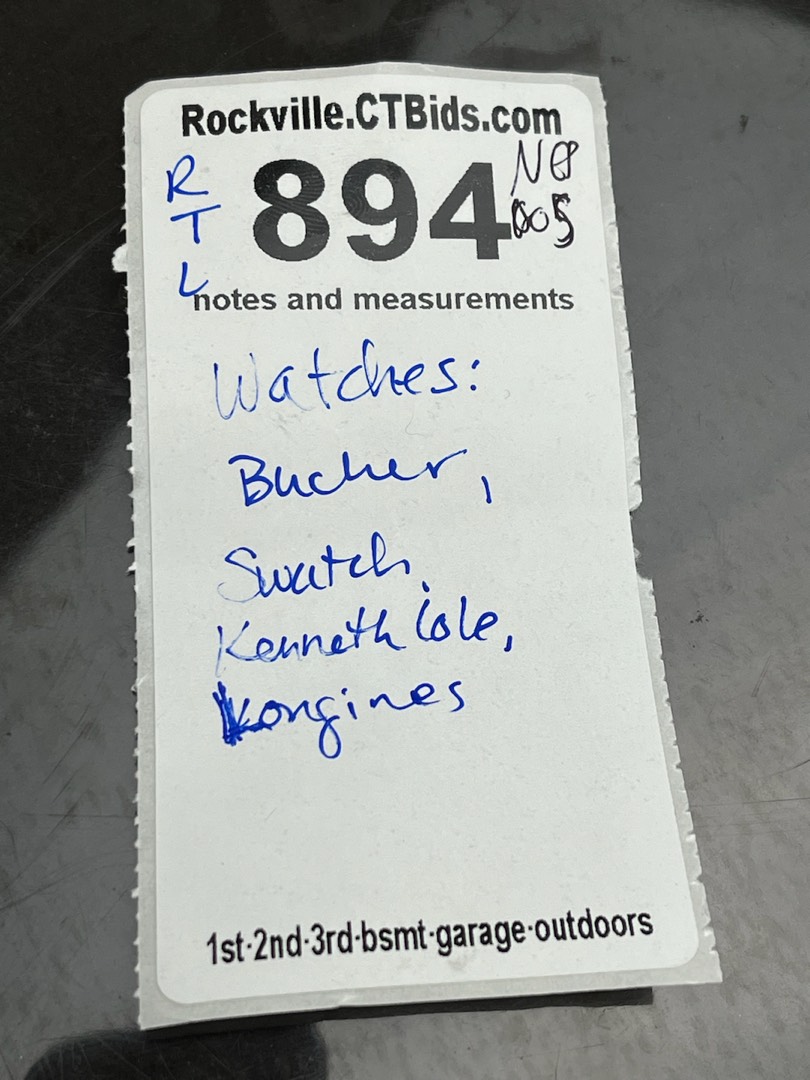 Rockville.CTBids.com
R
T
L
894
notes and measurements
Watches:
Bucher,
Swatch,
Kenneth Cole,
Longines
1st·2nd·3rd·bsmt·garage·outdoors